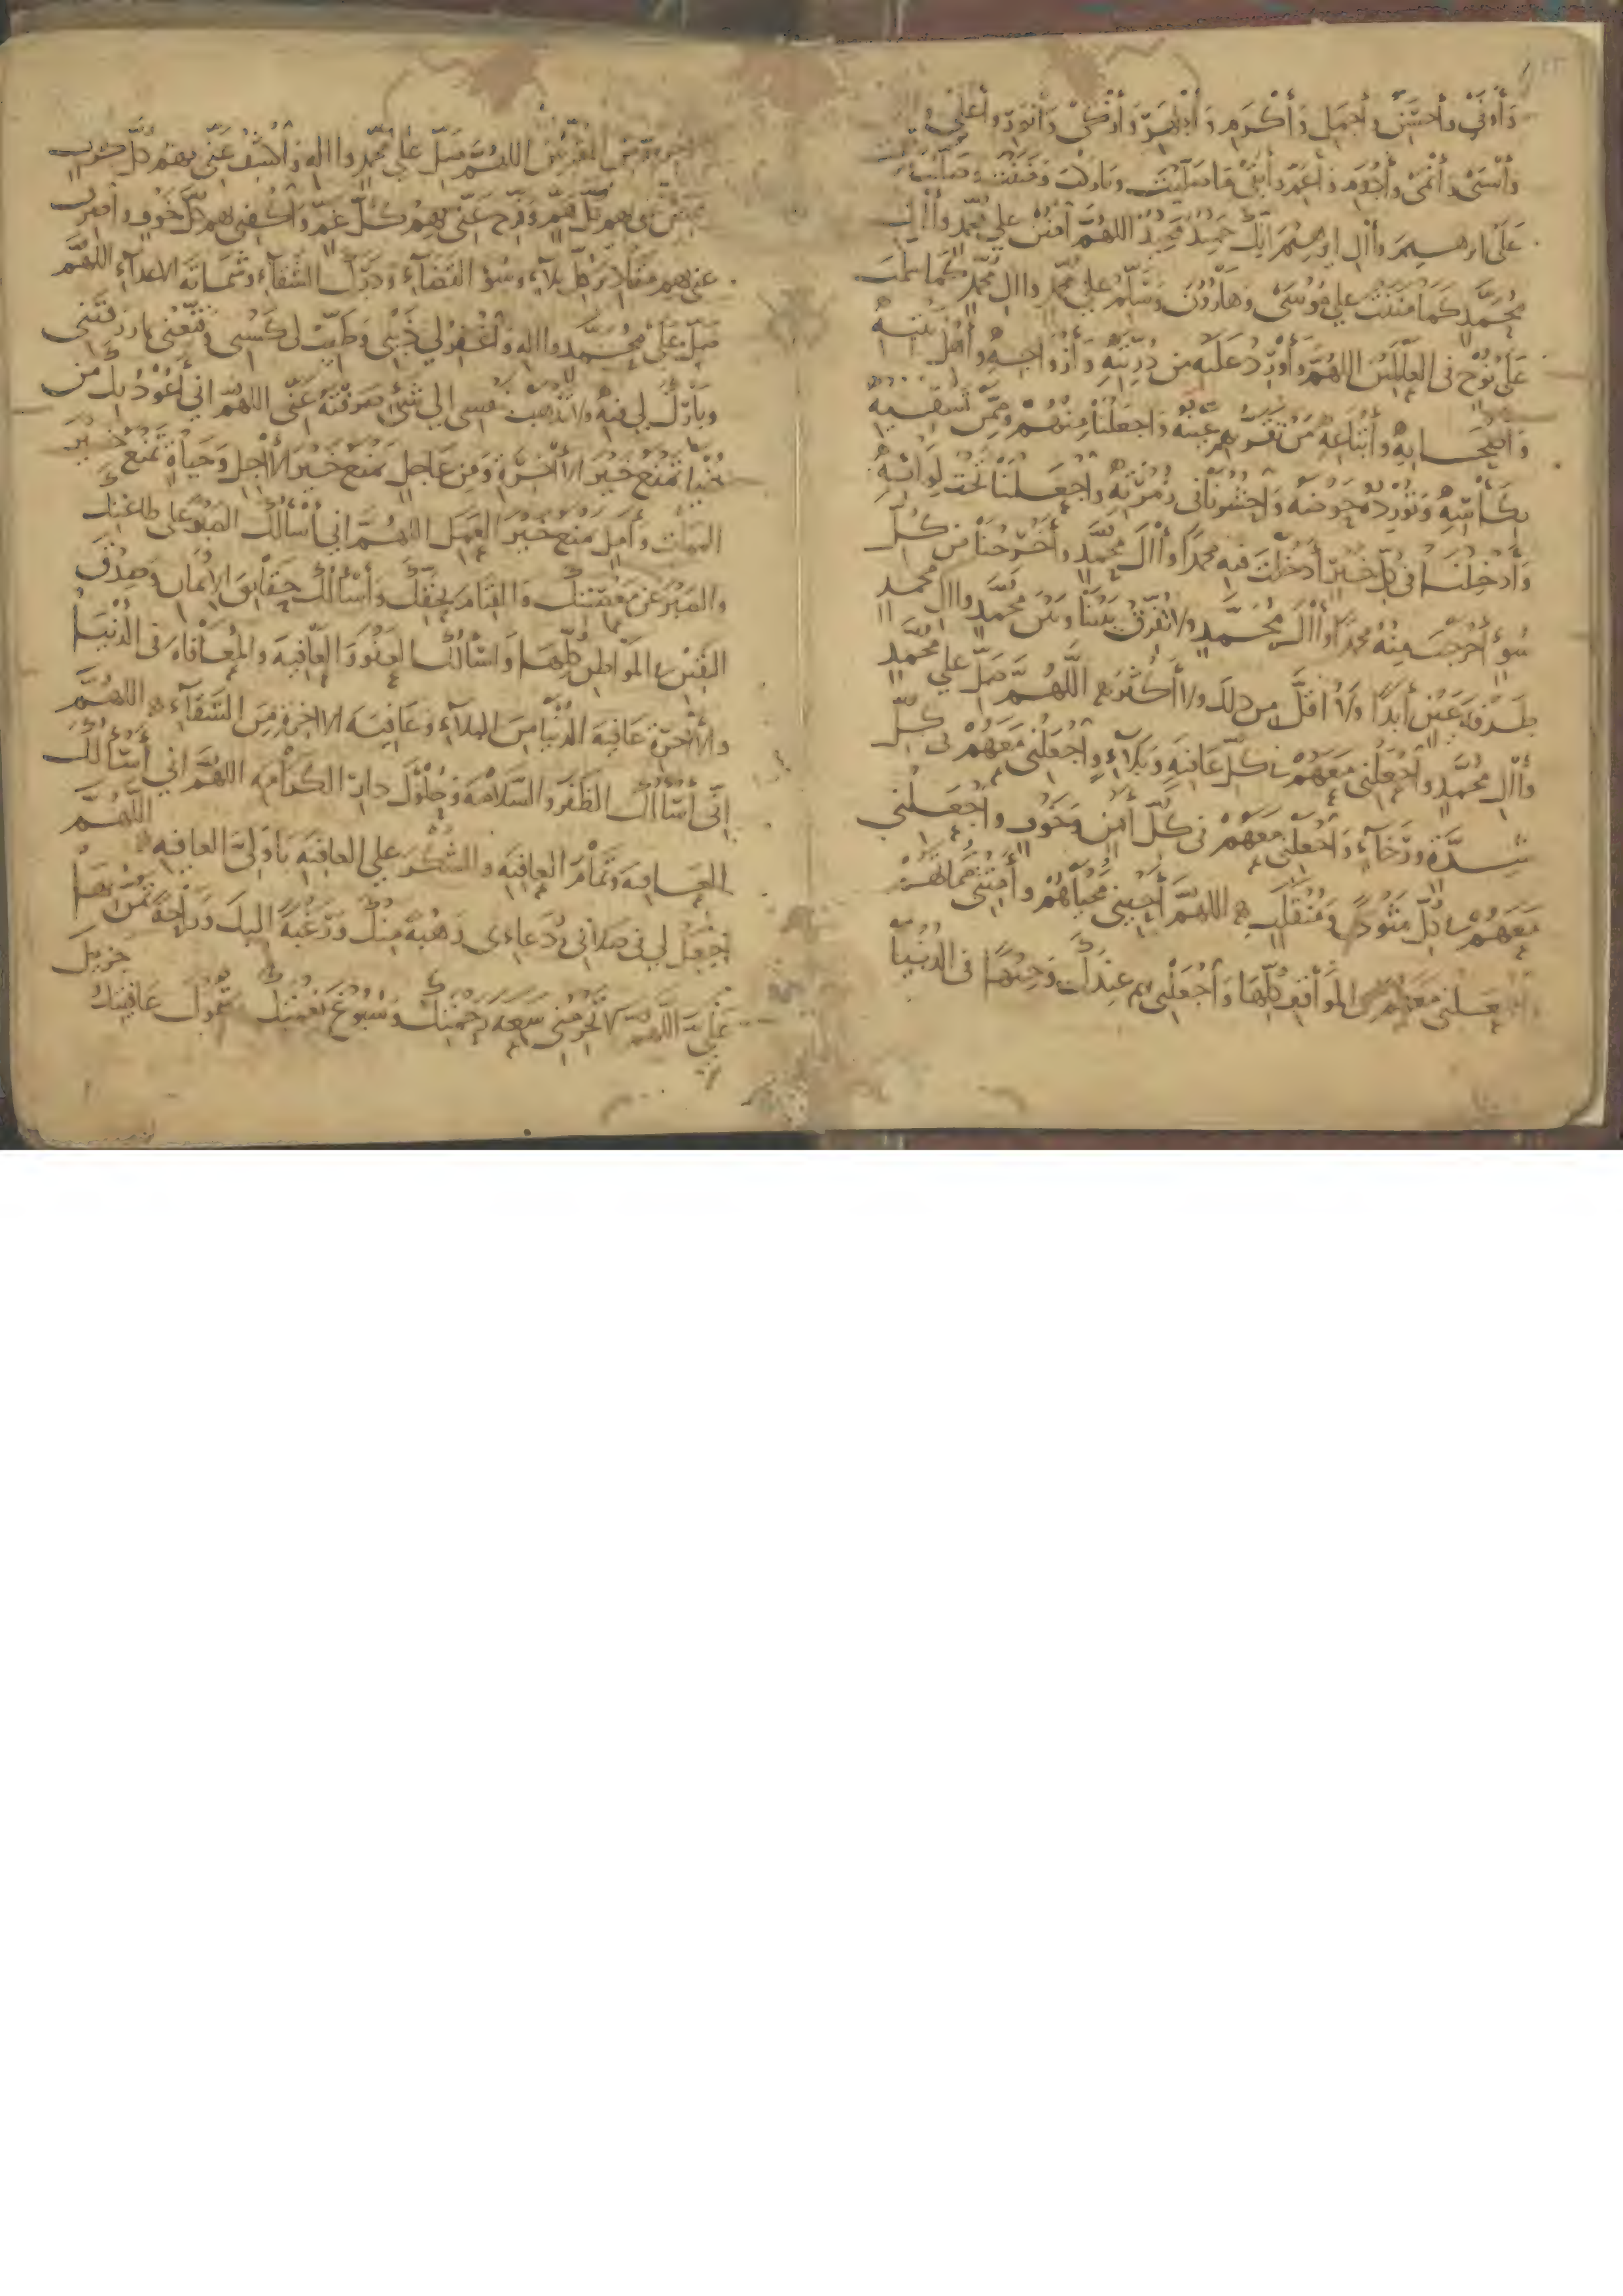 وأوفى وأحسن وأجمل وأكرم وأطهر وأزكى وأنور وأعلى و
وأسنى وأنمى وأدوم وأعم وأبقى ما صليت وباركت ومننت وصليت
على ابرهيم وأال ابرهيم انك حميد مجيد اللهم امنن على محمد وأال
محمد كما مننت على موسى وهارون وسلم على محمد واال محمد كما سلمت
على نوح في العالمين اللهم وأورد عليه من ذريته وأزواجه وأهل بيته
وأصحابه وأتباعه من تقر بهم عينه واجعلنا منهم وممن تسقيه
بكأسه وتورده حوضه واحشرنا في زمرته واجعلنا تحت لوائه
وأدخلنا في كل خير أدخلت فيه محمدا وأال محمد وأخرجنا من كل
سوء أخرجت منه محمدا وأال محمد ولا تفرق بيننا وبين محمد واال محمد
طرفة عين أبدا ولا أقل من ذلك ولا أكثر اللهم صل على محمد
وأال محمد واجعلني معهم في كل عافية وبلاء واجعلني معهم في كل
شدة ورخاء واجعلني معهم في كل أمن وخوف واجعلني
معهم في كل مثوى ومنقلب اللهم أحيني محياهم وأمتني مماتهم
واجعلني معهم في المواقف كلها واجعلني بهم عندك وجيها في الدنيا
والاخرة ومن المقربين اللهم صل على محمد واله واكشف عني بهم كل كرب
ونفس عني بهم كل هم وفرج عني بهم كل غم واكفني بهم كل خوف واصرف
عني بهم مقادير كل بلاء وسوء القضاء ودرك الشقاء وشماتة الاعداء اللهم
صل على محمد واله واغفر لي ذنبي وطيب لي كسبي وقنعني بما رزقتني
وبارك لي فيه ولا تذهب بنفسي الى شيء صرفته عني اللهم اني أعوذ بك من
دنيا تمنع خير الأخرة ومن عاجل يمنع خير الأجل وحياة تمنع خير
الممات وأمل يمنع خير العمل اللهم اني أسألك الصبر على طاعتك
والصبر عن معصيتك والقيام بحقك وأسألك حقائق الإيمان وصدق
اليقين في المواطن كلها وأسألك العفو والعافية والمعافاة في الدنيا
والأخرة عافية الدنيا من البلاء وعافية الاخرة من الشقاء اللهم
إني أسألك الظفر والسلامة وحلول دار الكرامة اللهم اني أسألك
العافية وتمام العافية والشكر على العافية يا ولي العافية اللهم
اجعل لي في صلاتي ودعاءي رهبة منك ورغبة اليك وراحة تمن بها
علي اللهم لا تحرمني سعة رحمتك وسبوغ نعمتك وشمول عافيتك جزيل